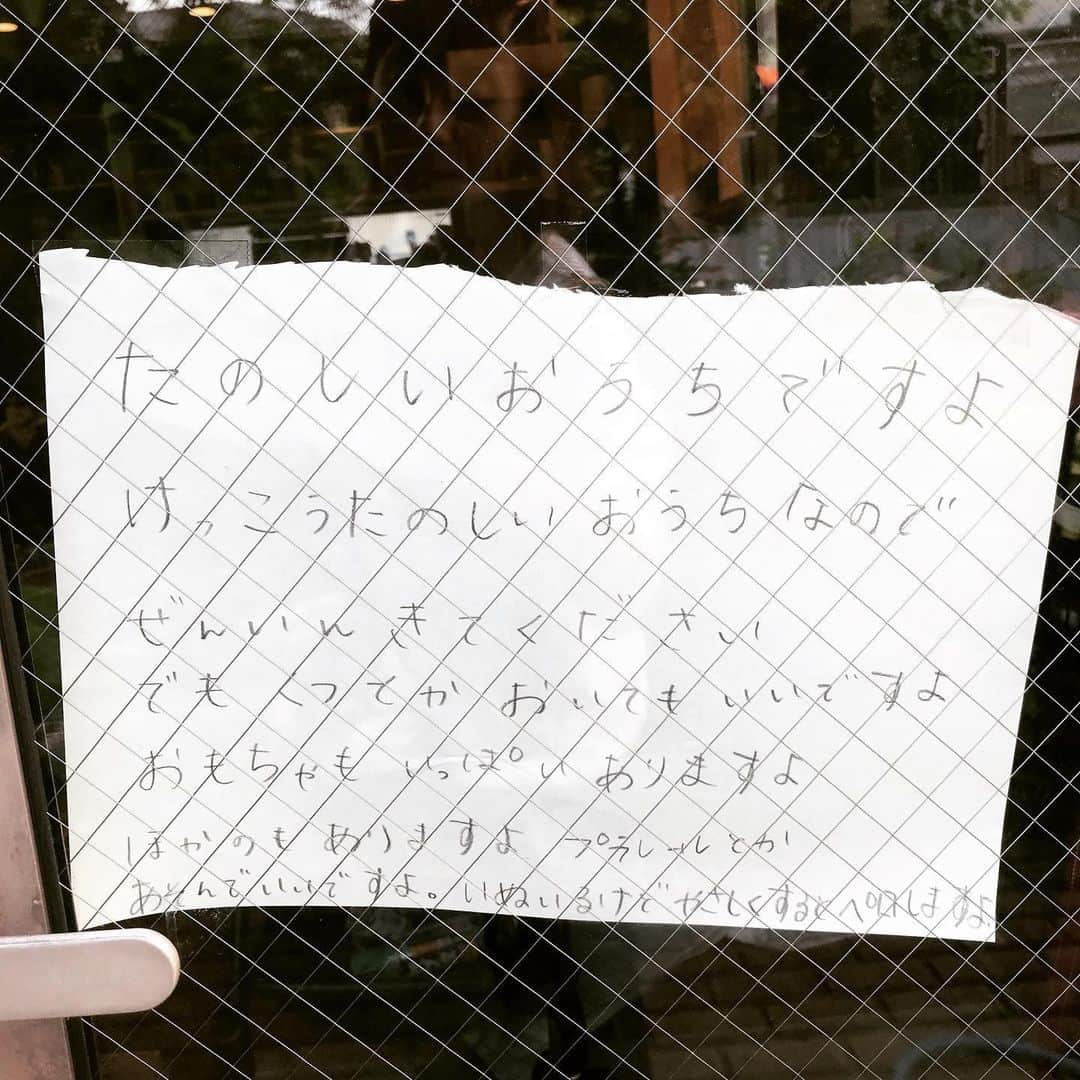 たのしいおうちですよ
けっこうたのしい おうち なので
ぜんいん きてください
でも くつとか おいても いいですよ
おもちゃも いっぱい ありますよ
ほかのも ありますよ プラレールとか
あそんでいいですよ。いぬいるけど やさしくすると ペロペロしますよ